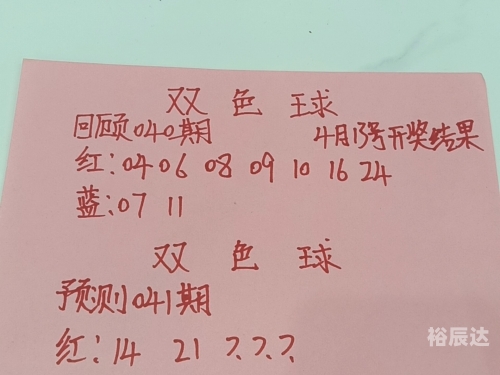 双色球
回顾040期 4月13号开奖结果
红:04 06 08 09 10 16 24
蓝:07 11
双色球
预测041期
红:14 21 ?.?.?.
裕辰达